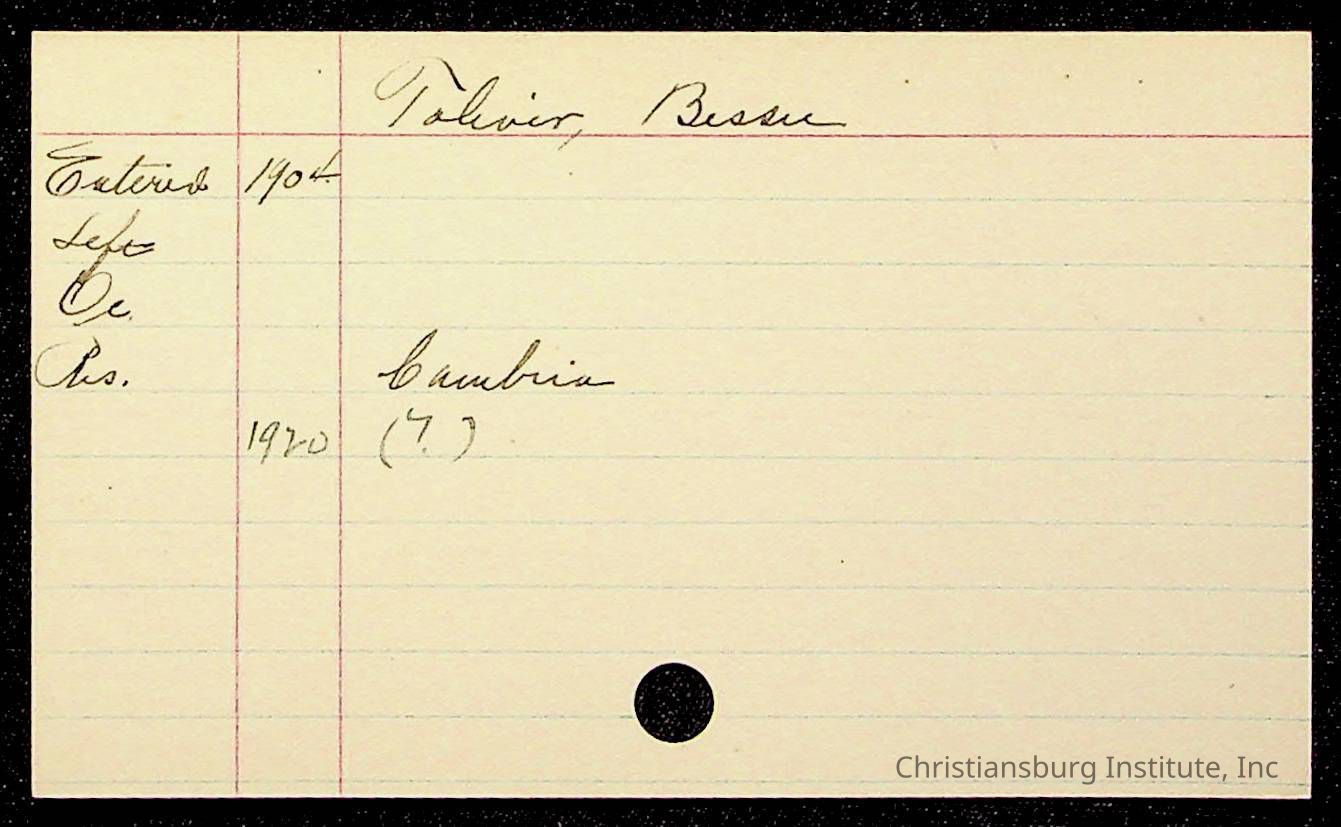 Toliver, Bessie
Entered 1904
Left
Oc.
Res. Cambria
1920 (?)
Christiansburg Institute, Inc